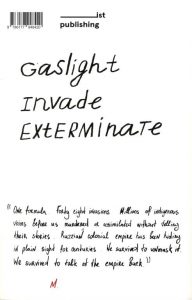 ist
publishing
Gaslight
Invade
Exterminate
"One formula. Forty eight invasions. Millions of indigenous
voices before us murdered or assimilated without telling
their stories. Russian colonial empire has been hiding
in plain sight for centuries. We survived to unmask it.
We survived to talk at the empire back"
M